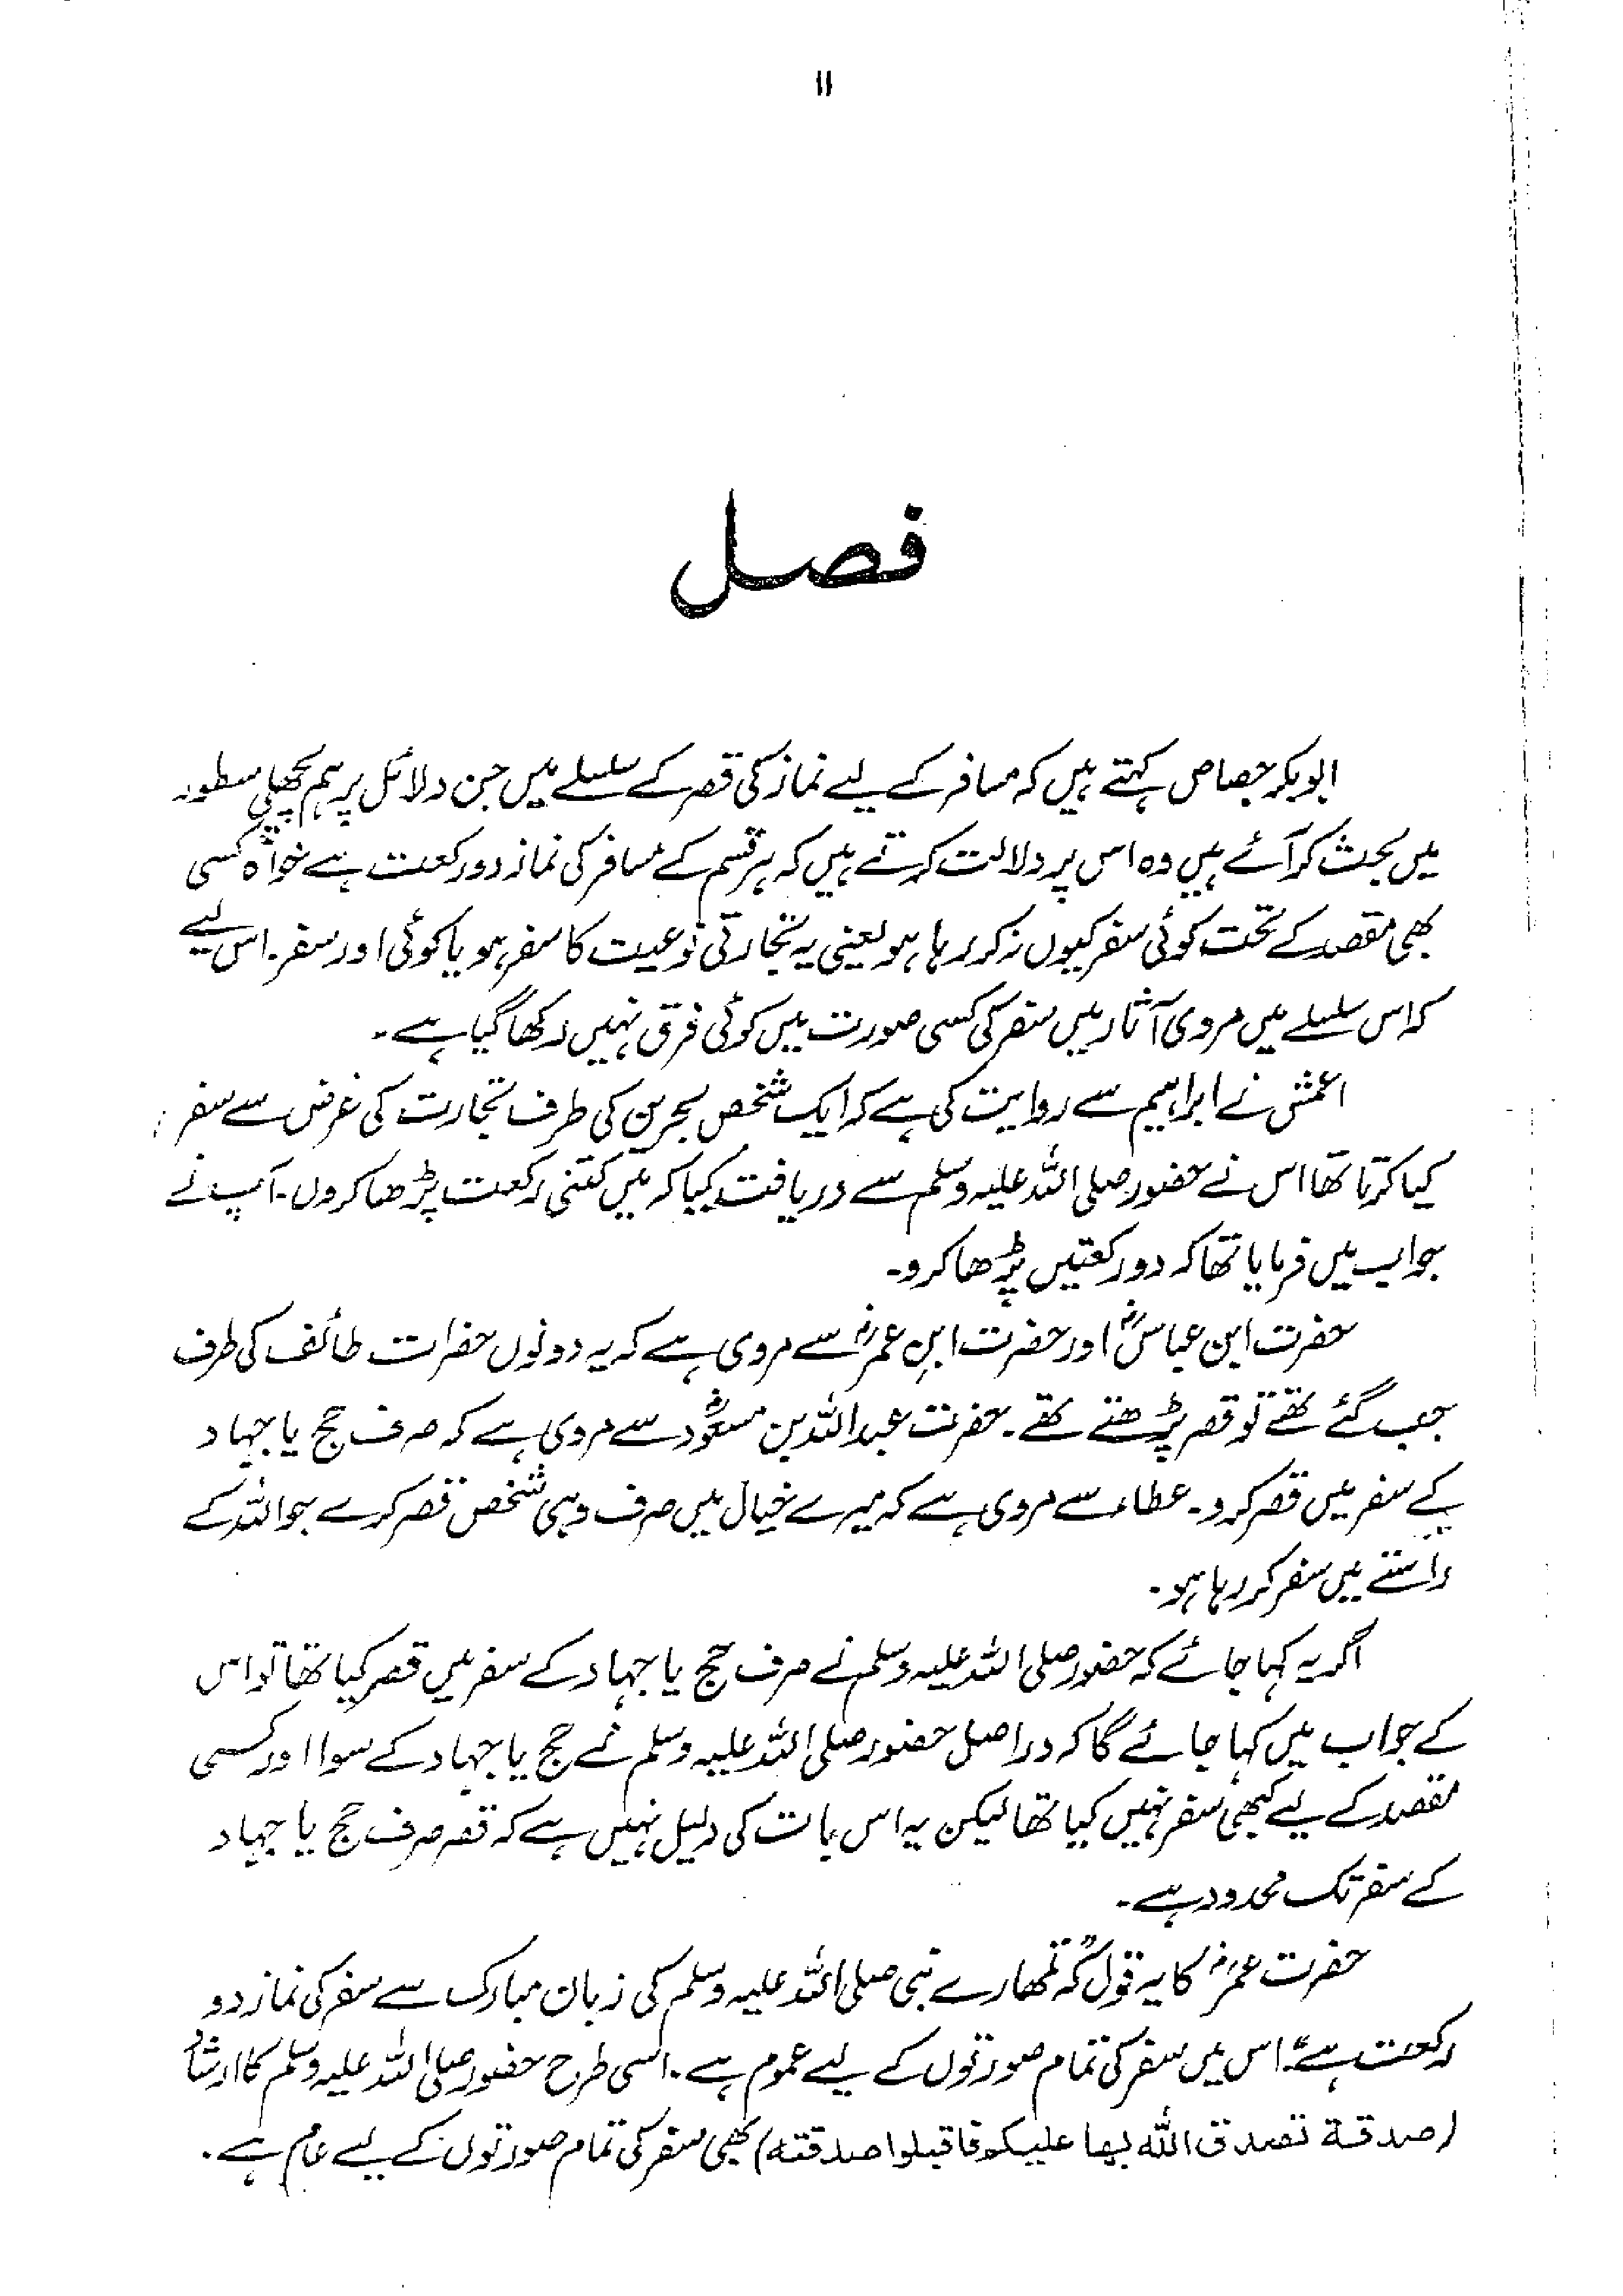 ۱۱
فصل
ابوبکر جصاص کہتے ہیں کہ مسافر کے لیے نماز کی قصر کے سلسلے میں جن دلائل پر ہم پچھلی سطور
میں بحث کر آئے ہیں وہ اس پر دلالت کرتے ہیں کہ ہر قسم کے مسافر کی نماز دو رکعت ہے خواہ کسی
بھی مقصد کے تحت کوئی سفر کیوں نہ کر رہا ہو یعنی یہ تجارتی نوعیت کا سفر ہو یا کوئی اور سفر۔ اس لیے
کہ اس سلسلے میں مروی آثار میں سفر کی کسی صورت میں کوئی فرق نہیں رکھا گیا ہے۔
اعمش نے ابراہیم سے روایت کی ہے کہ ایک شخص بحرین کی طرف تجارت کی غرض سے سفر
کیا کرتا تھا اس نے حضور صلی اللہ علیہ وسلم سے دریافت کیا کہ میں کتنی رکعت پڑھا کروں۔ آپ نے
جواب میں فرمایا تھا کہ دو رکعتیں پڑھا کرو۔
حضرت ابن عباسؓ اور حضرت ابن عمرؓ سے مروی ہے کہ یہ دونوں حضرات طائف کی طرف
جب گئے تھے تو قصر پڑھتے تھے۔ حضرت عبداللہ بن مسعودؓ سے مروی ہے کہ صرف حج یا جہاد
کے سفر میں قصر کرو۔ عطاء سے مروی ہے کہ میرے خیال میں صرف وہی شخص قصر کرے جو اللہ کے
راستے میں سفر کر رہا ہو۔
اگر یہ کہا جائے کہ حضور صلی اللہ علیہ وسلم نے صرف حج یا جہاد کے سفر میں قصر کیا تھا تو اس
کے جواب میں کہا جائے گا کہ دراصل حضور صلی اللہ علیہ وسلم نے حج یا جہاد کے سوا اور کسی
مقصد کے لیے کبھی سفر نہیں کیا تھا لیکن یہ اس بات کی دلیل نہیں ہے کہ قصر صرف حج یا جہاد
کے سفر تک محدود ہے۔
حضرت عمرؓ کا یہ قول کہ ”تمھارے نبی صلی اللہ علیہ وسلم کی زبان مبارک سے سفر کی نماز دو
رکعت ہے“ اس میں سفر کی تمام صورتوں کے لیے عموم ہے۔ اسی طرح حضور صلی اللہ علیہ وسلم کا ارشاد
(صدقة تصدق الله بها عليكم فاقبلوا صدقته) بھی سفر کی تمام صورتوں کے لیے عام ہے۔